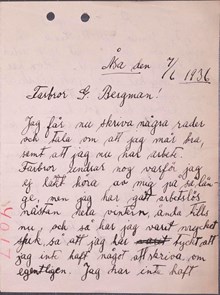 Åsa den 7/6 1936
Farbror G. Bergman!
Jag får nu skriva några rader
och tala om att jag mår bra,
samt att jag nu har arbete.
Farbror undrar nog varför jag
ej låtit höra av mig på så län-
ge, men jag har gått arbetslös
nästan hela vintern, ända tills
nu, och så har jag varit mycket
sjuk, så att jag har tyckt att
jag inte haft något att skriva, om
egentligen. Jag har inte haft